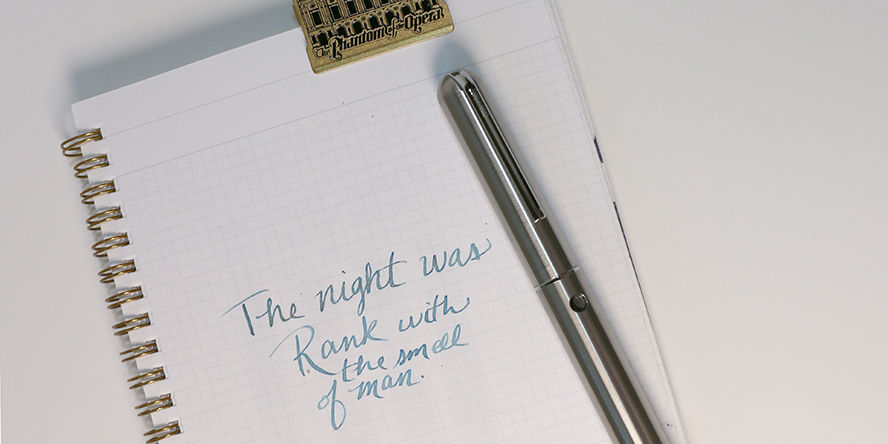 The Phantom of the Opera
The night was
Rank with
the smell
of man.